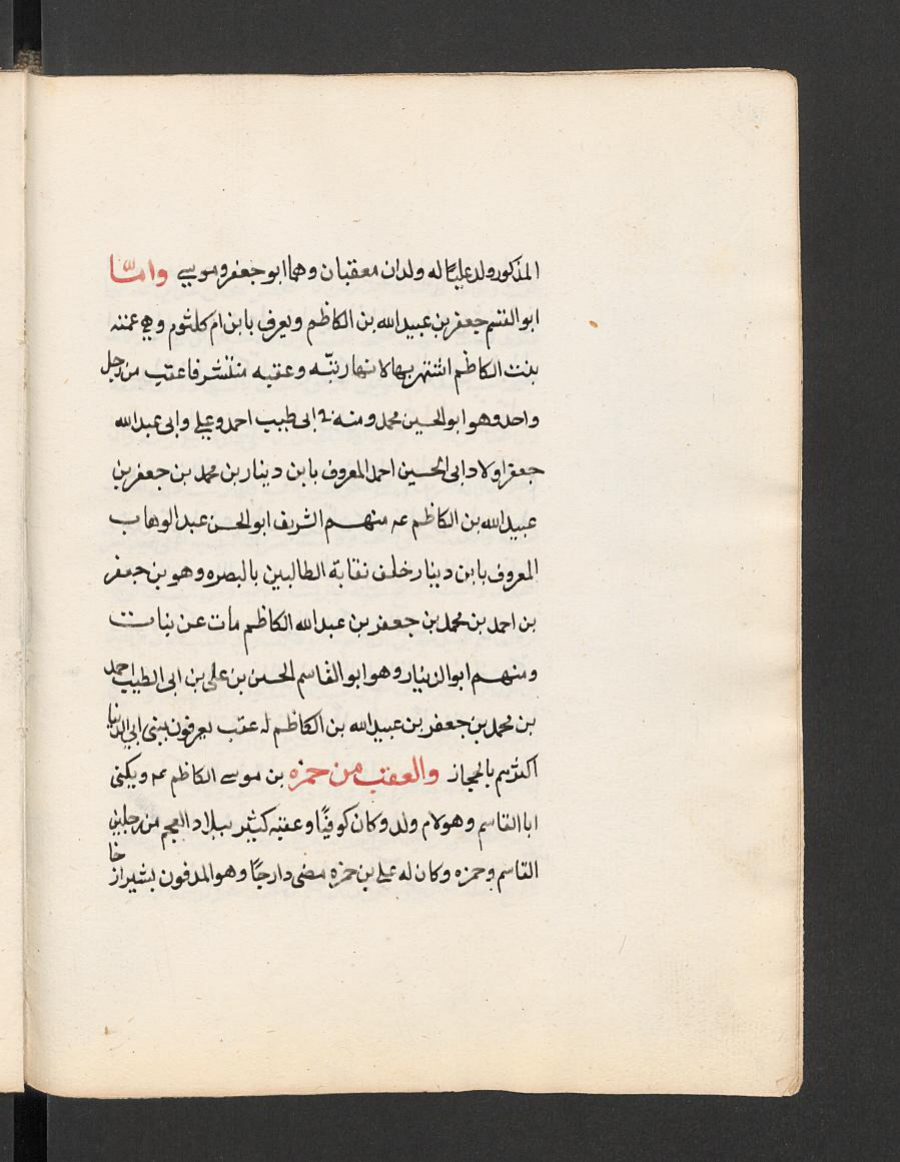 المذكور ولد عليا له ولدان معقبان وهما ابو جعفر وموسى وامّا
ابو القسم جعفر بن عبيد الله بن الكاظم ويعرف بابن ام كلثوم وهي عمته
بنت الكاظم اشتهر بها لانها ربّته وعقبه منتشر فاعقب من رجل
واحد وهو ابو الحسين محمد ومنه في ابى طيب احمد وعلي وابى عبد الله
جعفر اولاد ابى الحسين احمد المعروف بابن دينار بن محمد بن جعفر بن
عبيد الله بن الكاظم عم منهم الشريف ابو الحسن عبد الوهاب
المعروف بابن دينار خلف نقابة الطالبين بالبصره وهو بن جعفر
بن احمد بن محمد بن جعفر بن عبد الله الكاظم مات عن بنات
ومنهم ابو الدنيا وهو ابو القاسم الحسن بن على بن ابى الطيب احمد
بن محمد بن جعفر بن عبيد الله بن الكاظم له عقب يعرفون ببنى ابي الدنيا
اكثرهم بالحجاز والعقب من حمزه بن موسى الكاظم عم ويكنى
ابا القاسم وهو لام ولد وكان كوفيًا وعقبه كثير ببلاد العجم من رجلين
القاسم وحمزه وكان له علي بن حمزه مضى دارجًا وهو المدفون بشيراز خا